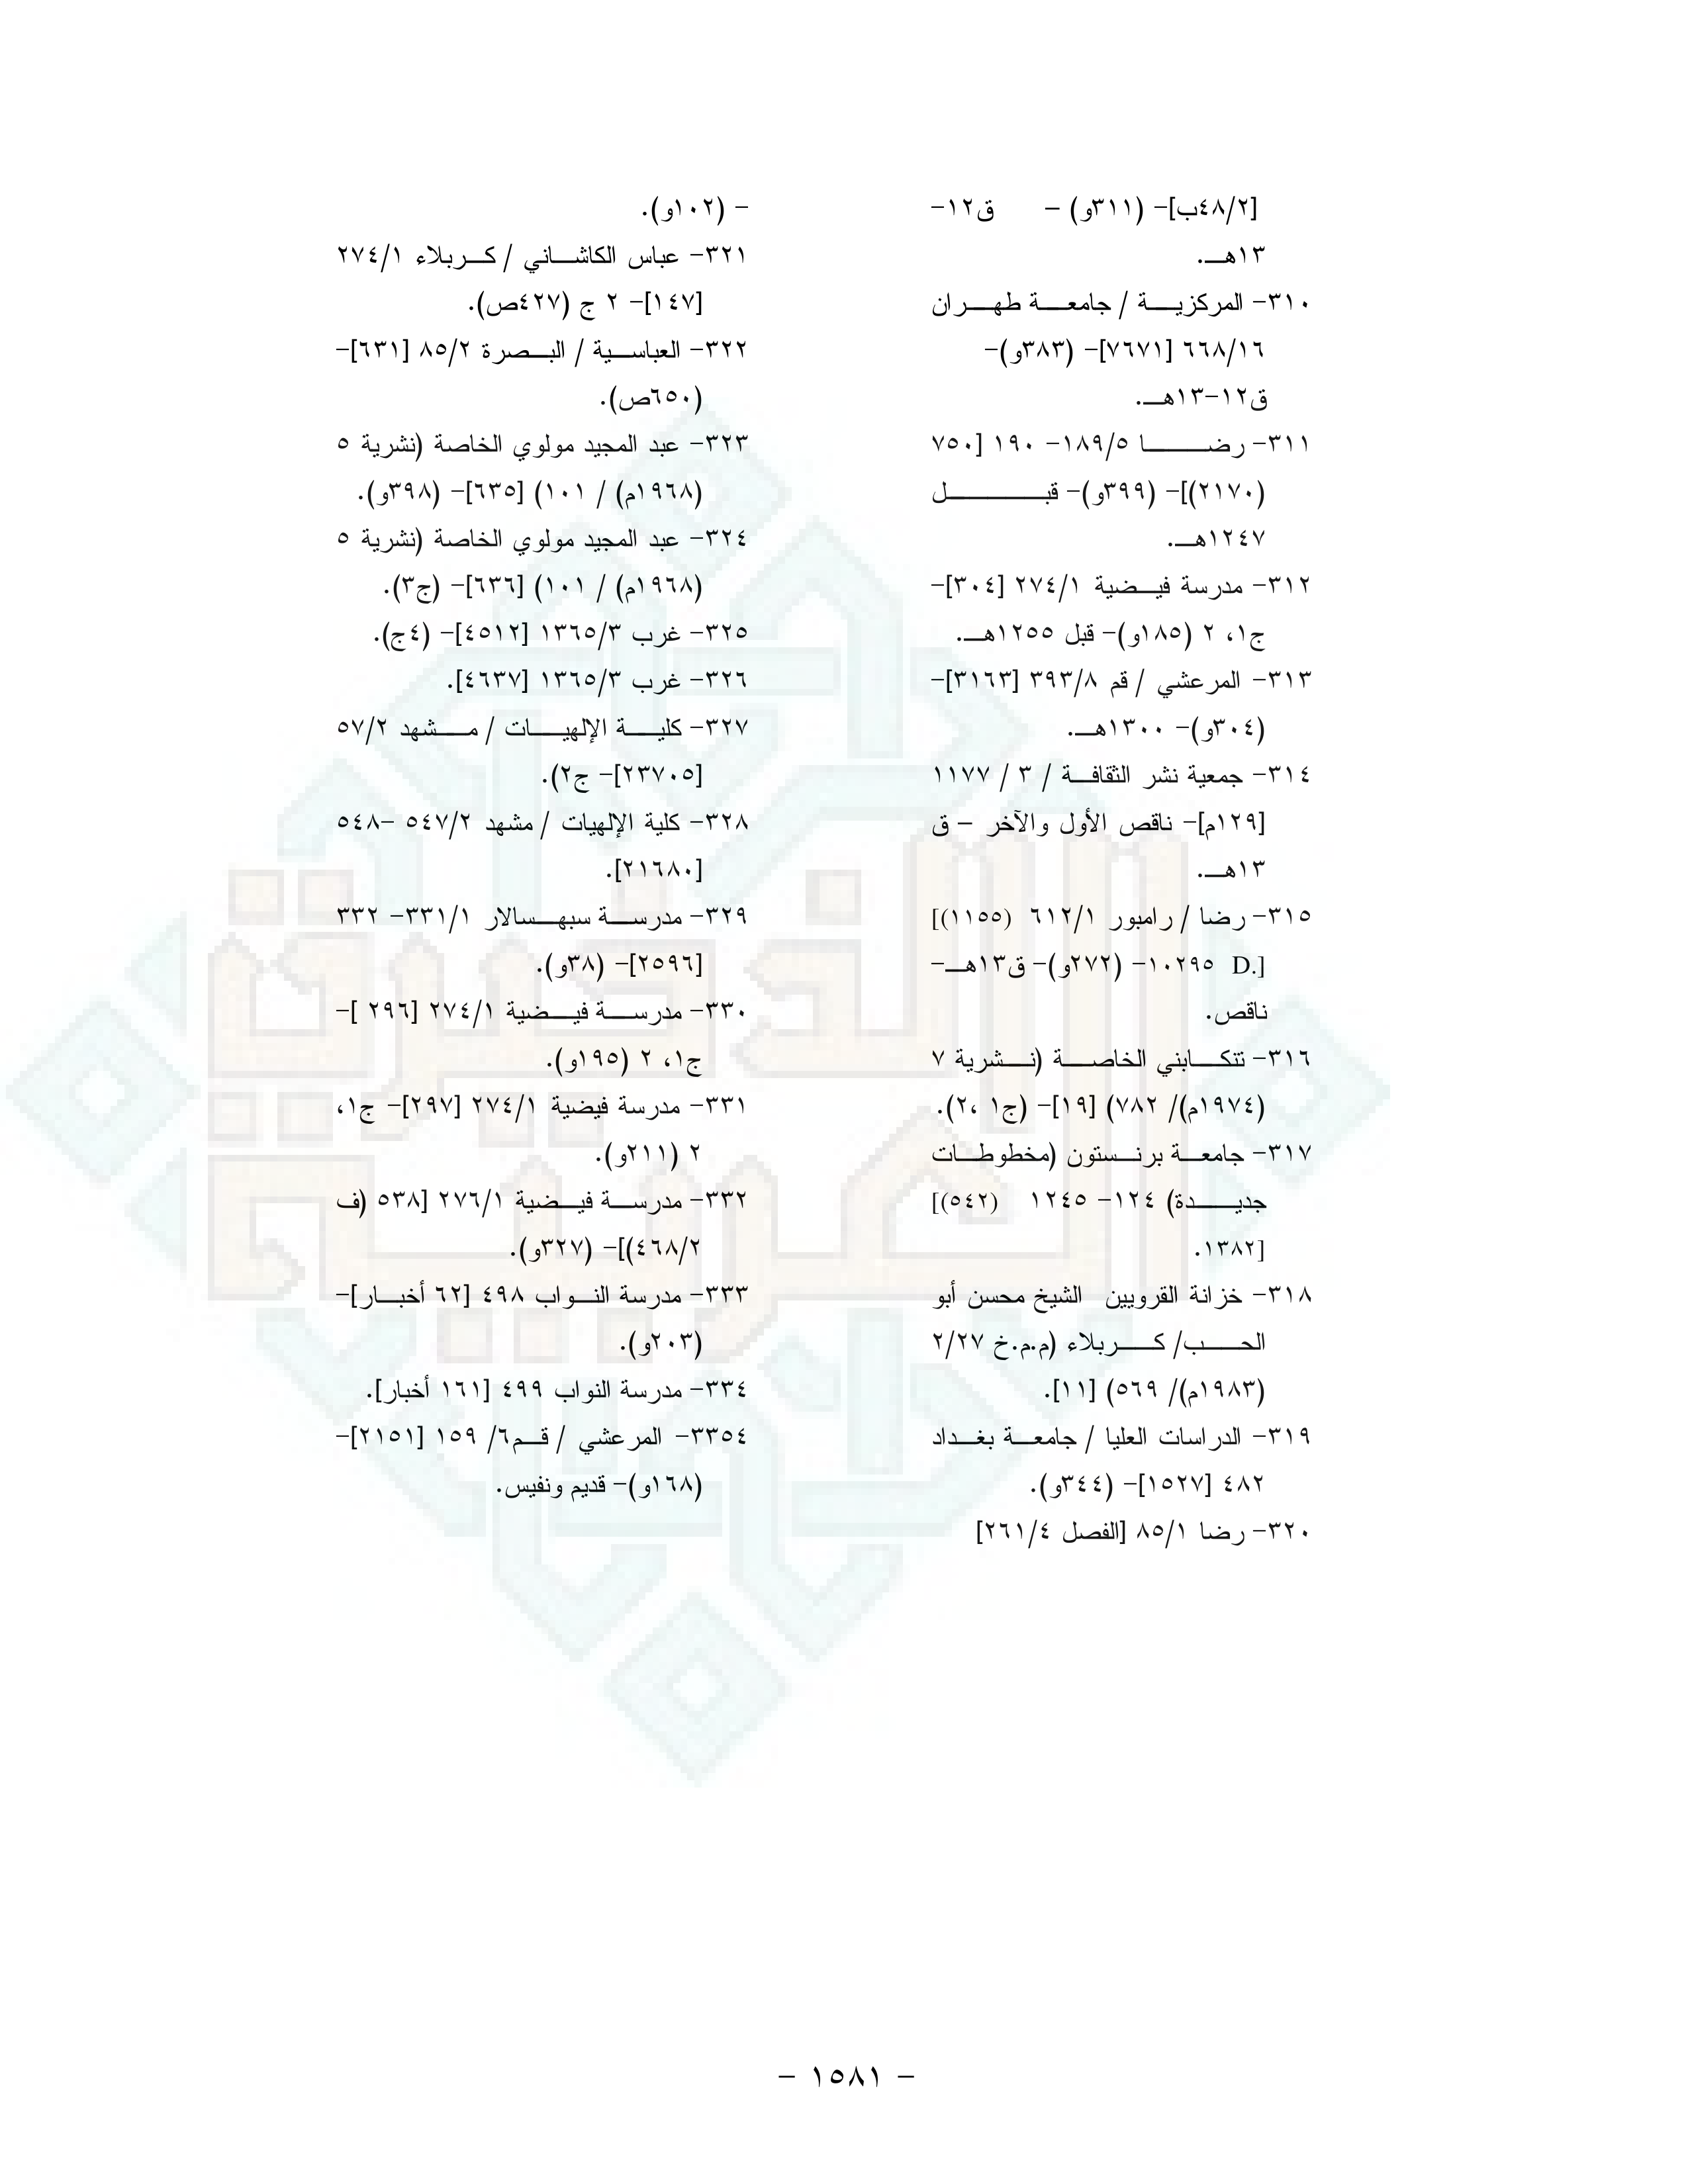 [٤٨/٢ب]- (٣١١و) – ق١٢-
١٣هـ.
٣١٠- المركزية / جامعة طهران
٦٦٨/١٦ [٧٦٧١]- (٣٨٣و)-
ق١٢-١٣هـ.
٣١١- رضا ١٨٩/٥- ١٩٠ [٧٥٠
(٢١٧٠)]- (٣٩٩و)- قبل
١٢٤٧هـ.
٣١٢- مدرسة فيضية ٢٧٤/١ [٣٠٤]-
ج١، ٢ (١٨٥و)- قبل ١٢٥٥هـ.
٣١٣- المرعشي / قم ٣٩٣/٨ [٣١٦٣]-
(٣٠٤و)- ١٣٠٠هـ.
٣١٤- جمعية نشر الثقافة / ٣ / ١١٧٧
[١٢٩م]- ناقص الأول والآخر – ق
١٣هـ.
٣١٥- رضا / رامبور ٦١٢/١ (١١٥٥)]
[.D ١٠٢٩٥- (٢٧٢و)- ق١٣هـ-
ناقص.
٣١٦- تنكابني الخاصة (نشرية ٧
(١٩٧٤م)/ ٧٨٢) [١٩]- (ج١ ،٢).
٣١٧- جامعة برنستون (مخطوطات
جديدة) ١٢٤- ١٢٤٥ (٥٤٢)]
[١٣٨٢.
٣١٨- خزانة القرويين الشيخ محسن أبو
الحب/ كربلاء (م.م.خ ٢/٢٧
(١٩٨٣م)/ ٥٦٩) [١١].
٣١٩- الدراسات العليا / جامعة بغداد
٤٨٢ [١٥٢٧]- (٣٤٤و).
٣٢٠- رضا ٨٥/١ [الفصل ٢٦١/٤]
- (١٠٢و).
٣٢١- عباس الكاشاني / كربلاء ٢٧٤/١
[١٤٧]- ٢ ج (٤٢٧ص).
٣٢٢- العباسية / البصرة ٨٥/٢ [٦٣١]-
(٦٥٠ص).
٣٢٣- عبد المجيد مولوي الخاصة (نشرية ٥
(١٩٦٨م) / ١٠١) [٦٣٥]- (٣٩٨و).
٣٢٤- عبد المجيد مولوي الخاصة (نشرية ٥
(١٩٦٨م) / ١٠١) [٦٣٦]- (ج٣).
٣٢٥- غرب ١٣٦٥/٣ [٤٥١٢]- (٤ج).
٣٢٦- غرب ١٣٦٥/٣ [٤٦٣٧].
٣٢٧- كلية الإلهيات / مشهد ٥٧/٢
[٢٣٧٠٥]- ج٢).
٣٢٨- كلية الإلهيات / مشهد ٥٤٧/٢ -٥٤٨
[٢١٦٨٠].
٣٢٩- مدرسة سبهسالار ٣٣١/١- ٣٣٢
[٢٥٩٦]- (٣٨و).
٣٣٠- مدرسة فيضية ٢٧٤/١ [٢٩٦ ]-
ج١، ٢ (١٩٥و).
٣٣١- مدرسة فيضية ٢٧٤/١ [٢٩٧]- ج١،
٢ (٢١١و).
٣٣٢- مدرسة فيضية ٢٧٦/١ [٥٣٨ (ف
٤٦٨/٢)]- (٣٢٧و).
٣٣٣- مدرسة النواب ٤٩٨ [٦٢ أخبار]-
(٢٠٣و).
٣٣٤- مدرسة النواب ٤٩٩ [١٦١ أخبار].
٣٣٥٤- المرعشي / قم٦/ ١٥٩ [٢١٥١]-
(١٦٨و)- قديم ونفيس.
- ١٥٨١ -
الذخيرة
الغربية